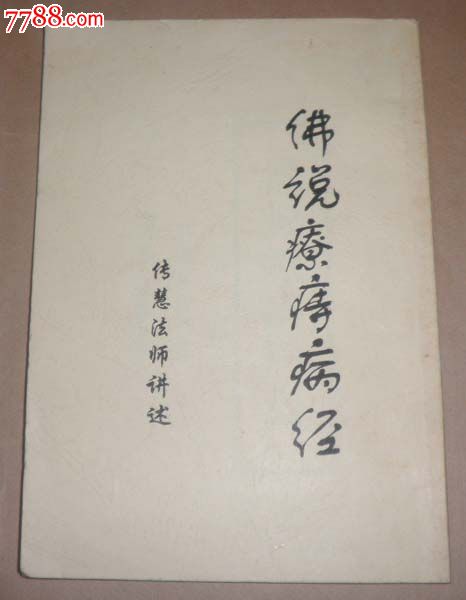 7788.com
佛说療痔病经
传慧法师讲述